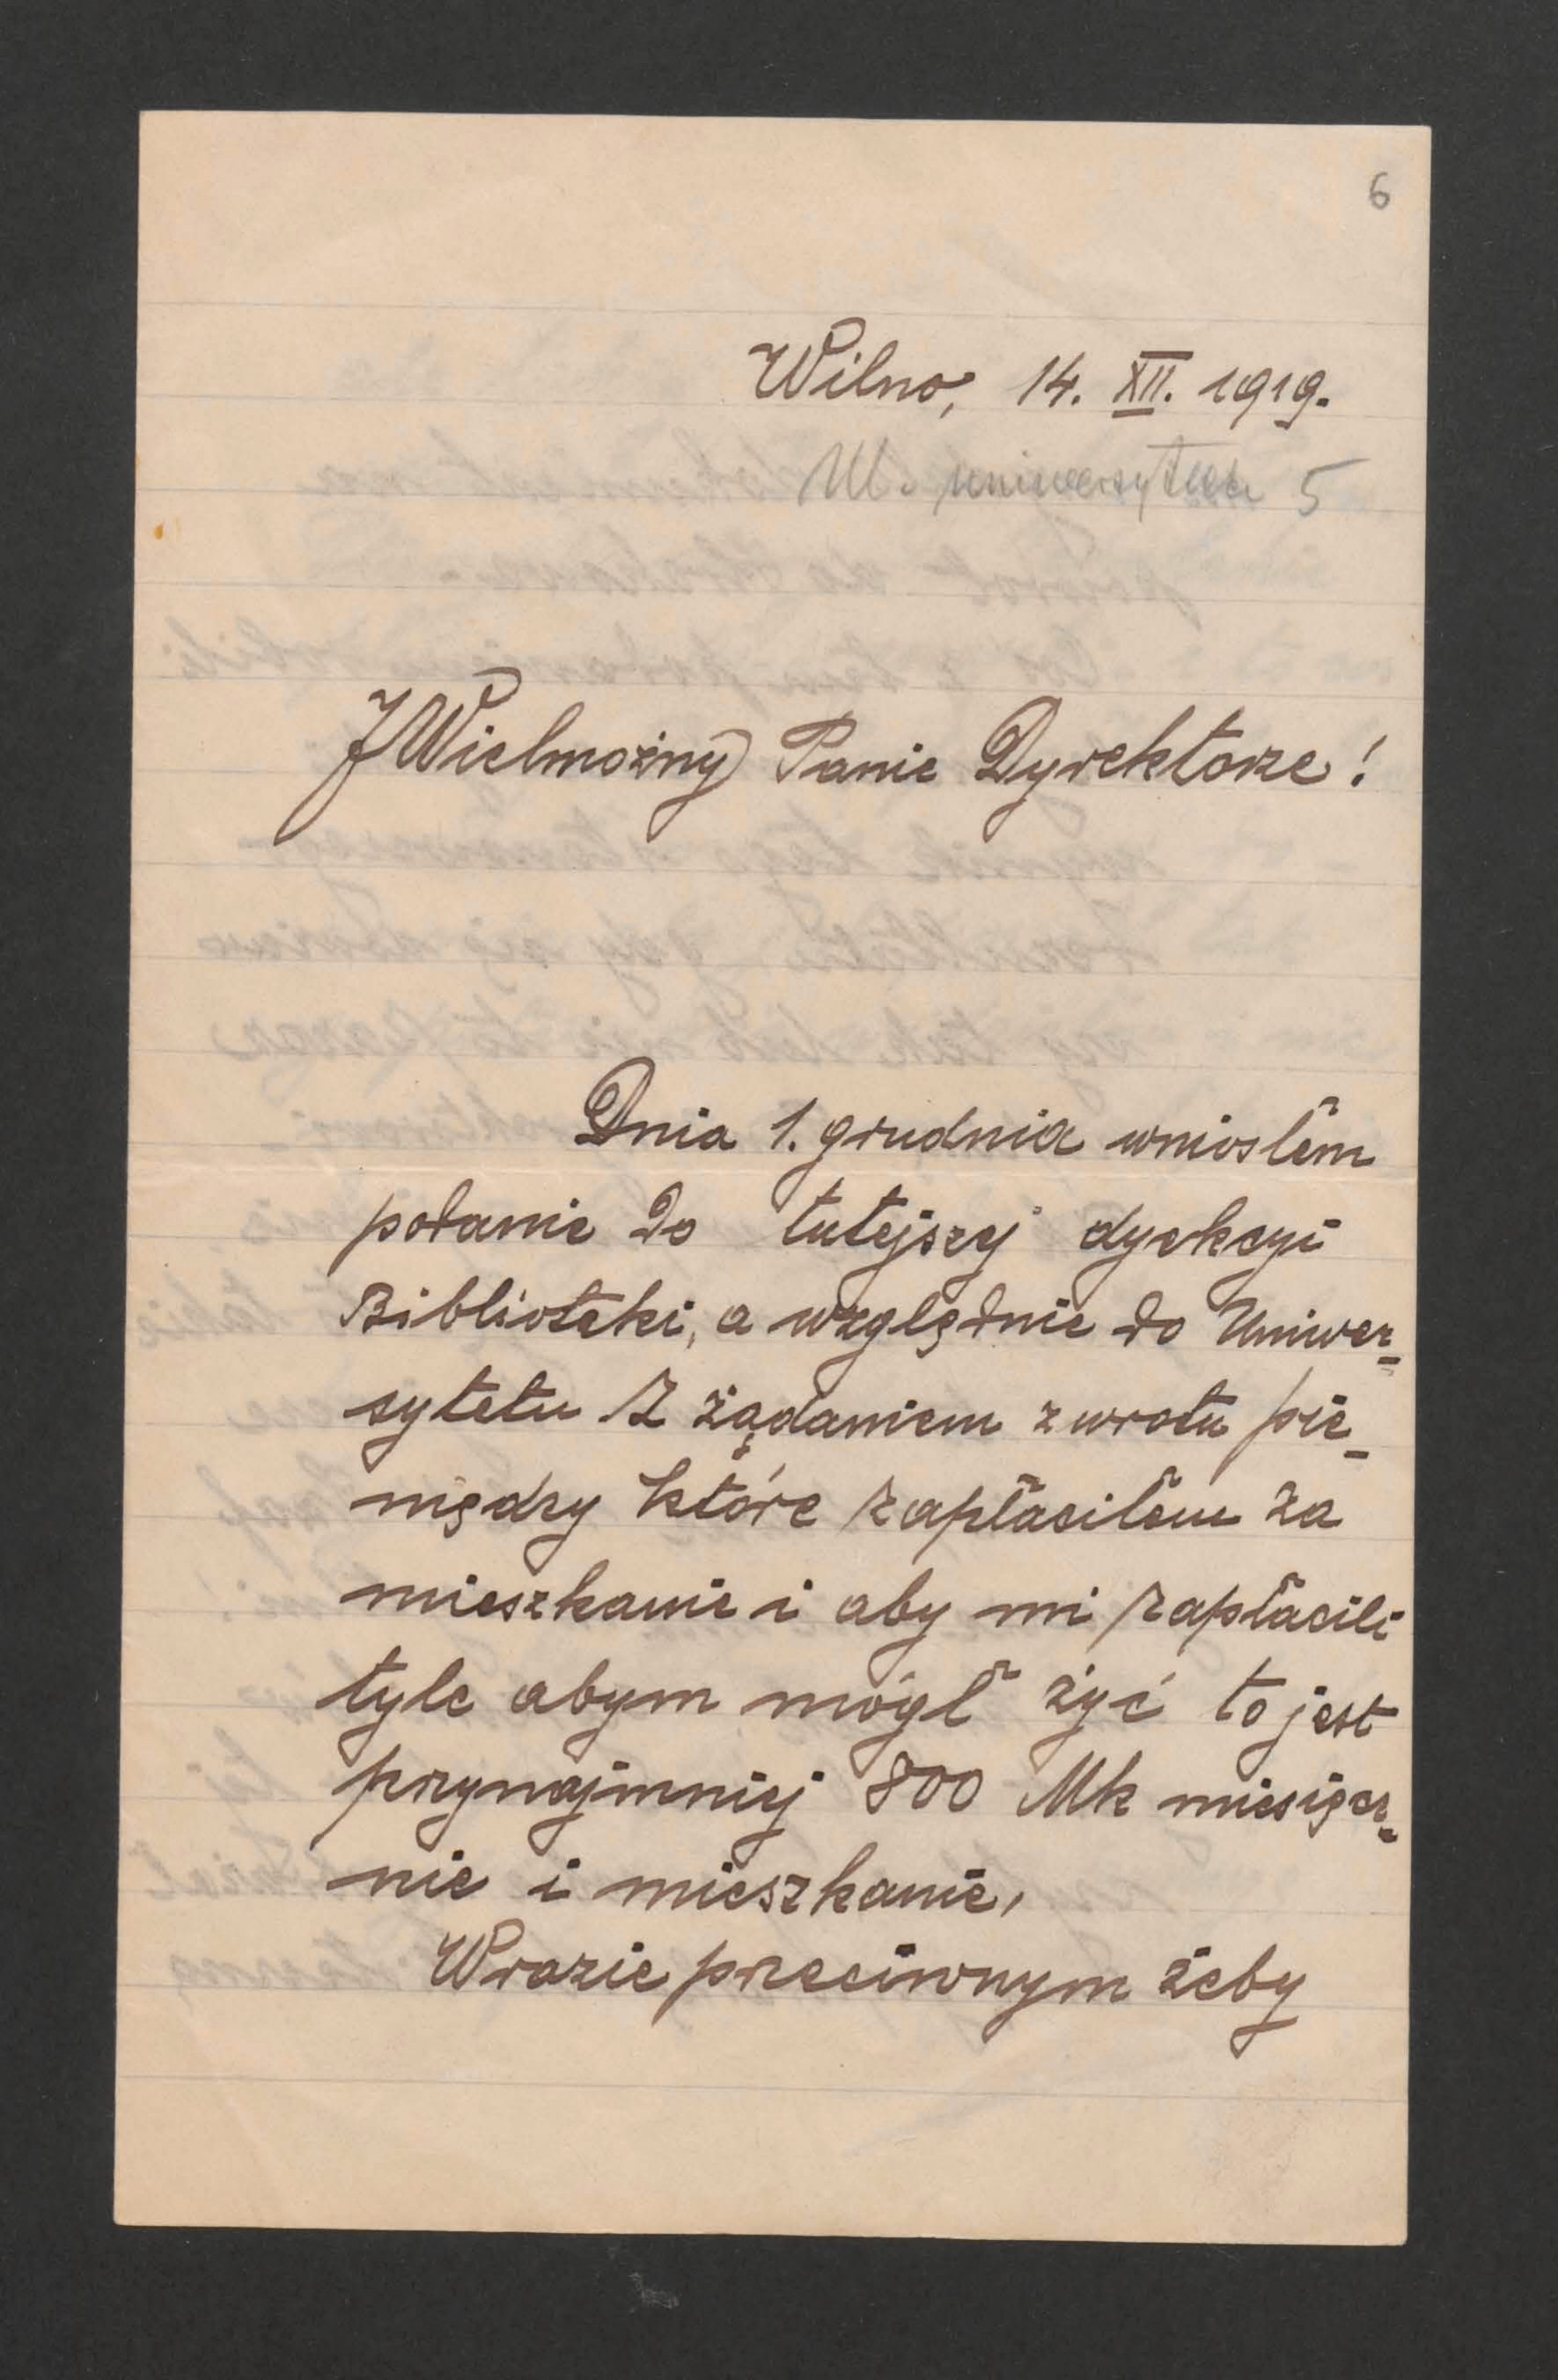 6
Wilno, 14. XII. 1919.
Ul. uniwersytecka 5
JWielmożny Panie Dyrektorze!
Dnia 1. grudnia wniosłem
podanie do tutejszej dyrekcyi
Biblioteki, a względnie do Uniwer-
sytetu z żądaniem zwrotu pie-
niędzy które zapłaciłem za
mieszkanie i aby mi zapłacili
tyle abym mógł żyć to jest
przynajmniej 800 Mk miesięcz-
nie i mieszkanie,
Wrazie przeciwnym żeby